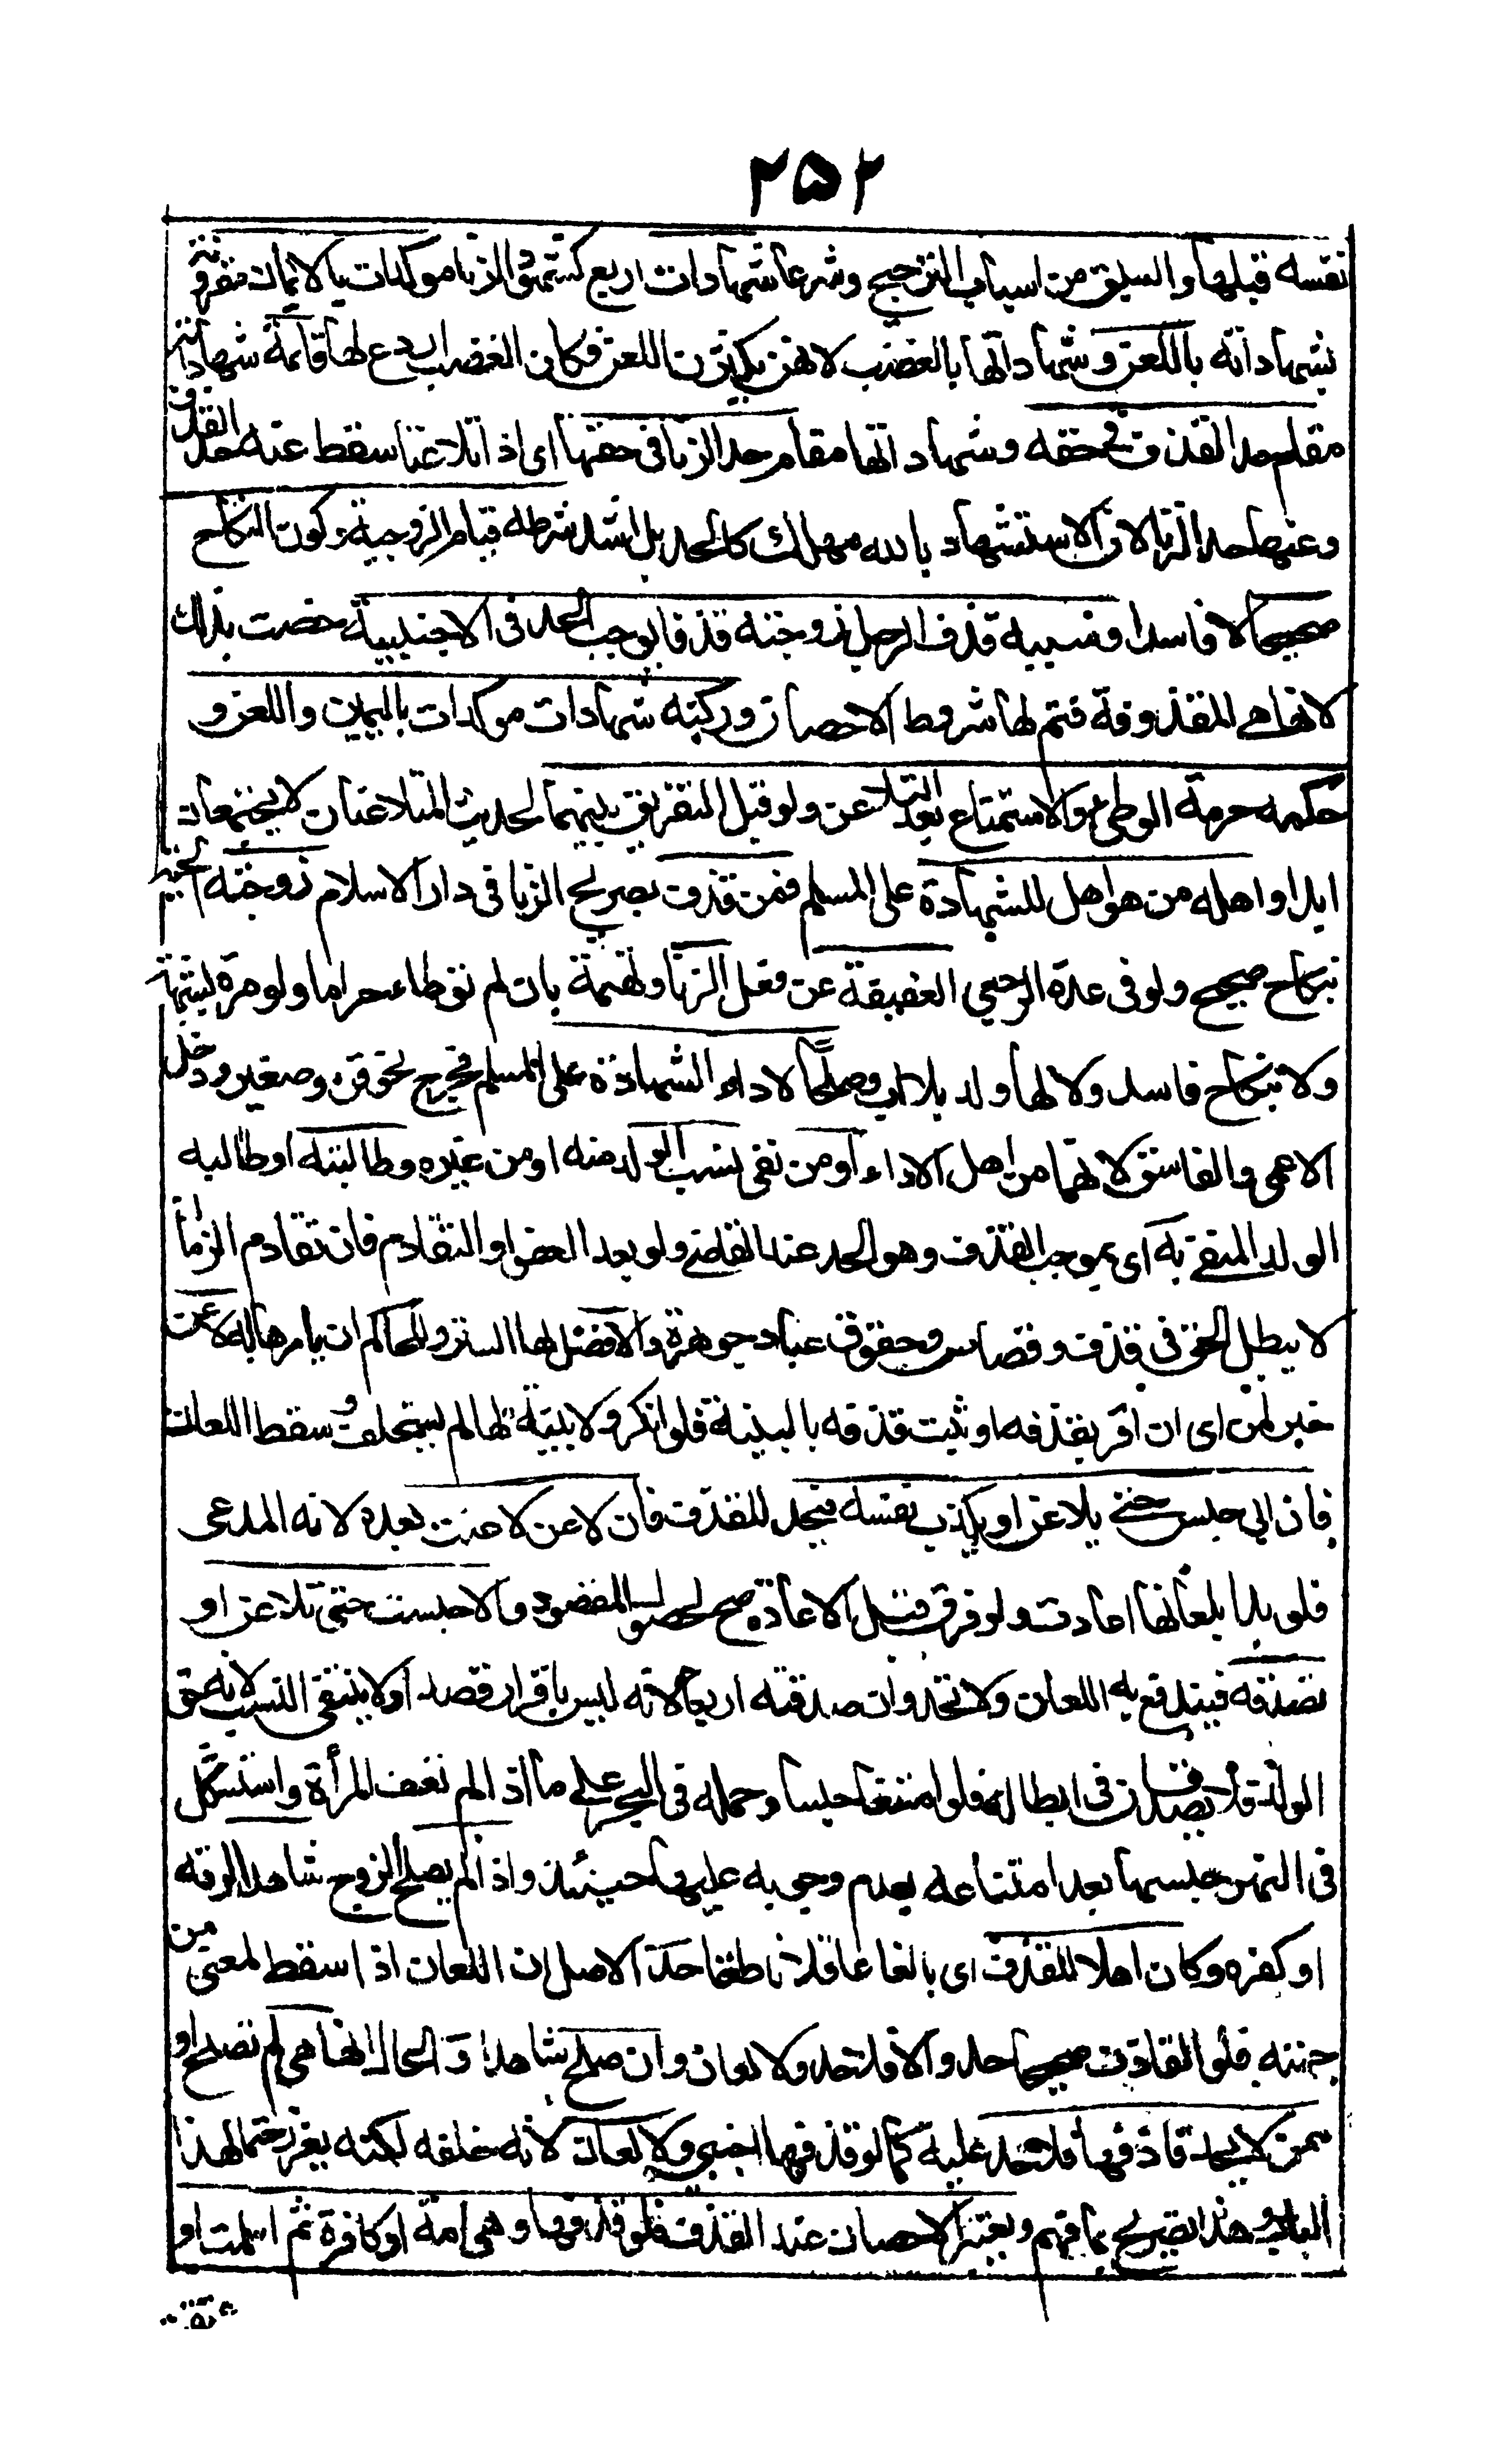 ٢٥٢
نفسه قبلها والسبق من اسباب الترجيح وشرعا شهادات اربع كشهود الزنا موكدات بالايمان مقرونة
شهاداته باللعن وشهاداتها بالغضب لانهن يكثرن اللعن فكان الغضب اردع لها قائمة شهاداته
مقام حد القذف في حقه وشهاداتها مقام حد الزنا في حقها اى اذا تلاعنا سقط عنه حد القذف
وعنها حد الزنا لان الاستشهاد بالله مهلك كالحد بل اشد شرطه قيام الزوجية وكون النكاح
صحيحا لا فاسدا وسببه قذف الرجل زوجته قذفا يوجب الحد في الاجنبية خصت بذلك
لانها هي المقذوفة فتم لها شروط الاحصان وركنه شهادات موكدات باليمين واللعن و
حكمه حرمة الوطئ والاستمتاع بعد التلاعن ولو قبل التفريق بينهما لحديث المتلاعنان لا يجتمعان
ابدا واهله من هو اهل للشهادة على المسلم فمن قذف بصريح الزنا في دار الاسلام زوجته الحية
بنكاح صحيح ولو في عدة الرجعي العفيفة عن فعل الزنا وتهمته بان لم توطأ حراما ولو مرة بشبهة
ولا بنكاح فاسد ولا لها ولد بلا اب وصلحا لاداء الشهادة على المسلم فخرج نحو قن وصغير ودخل
الاعمى والفاسق لانهما من اهل الاداء او من نفى نسب الولد منه او من غيره وطالبته او طالبه
الولد المنفي به اى بموجب القذف وهو الحد عند القاضي ولو بعد العفو او التقادم فان تقادم الزمان
لا يبطل الحق في قذف وقصاص وحقوق عباد جوهرة والافضل لها الستر وللحاكم ان يامرها به لاعن
خبر لمن اى ان اقر بقذفه او ثبت قذفه بالبينة فلو انكر ولا بينة لها لم يستحلف وسقط اللعان
فان ابى حبس حتى يلاعن او يكذب نفسه فيحد للقذف فان لاعن لاعنت بعده لانه المدعى
فلو بدا بلعانها اعادت ولو فرق قبل الاعادة صح لحصول المقصود والا حبست حتى تلاعن او
تصدقه فيندفع به اللعان ولا تحد وان صدقته اربعا لانه ليس باقرار قصدا ولا ينتفي النسب لانه حق
الولد فلا يصدقان في ابطاله فلو امتنعا حبسا وحمله في البحر على ما اذا لم تعف المرأة واستشكل
في النهر حبسها بعد امتناعه بعدم وجوبه عليها حينئذ واذا لم يصلح الزوج شاهدا لرقه
او كفره وكان اهلا للقذف اى بالغا عاقلا ناطقا حد الاصل ان اللعان اذا سقط لمعنى من
جهته فلو القاذف صحيحا حد والا فلا حد ولا لعان وان صلح شاهدا والحال انها هي لم تصلح او
ممن لا يحد قاذفها فلا حد عليه كما لو قذفها اجنبي ولا لعان لانه خلفه لكنه يعزر حتما لهذا
الباب وهذا تصريح بما فهم ويعتبر الاحصان عند القذف فلو قذفها وهي امة او كافرة ثم اسلمت او